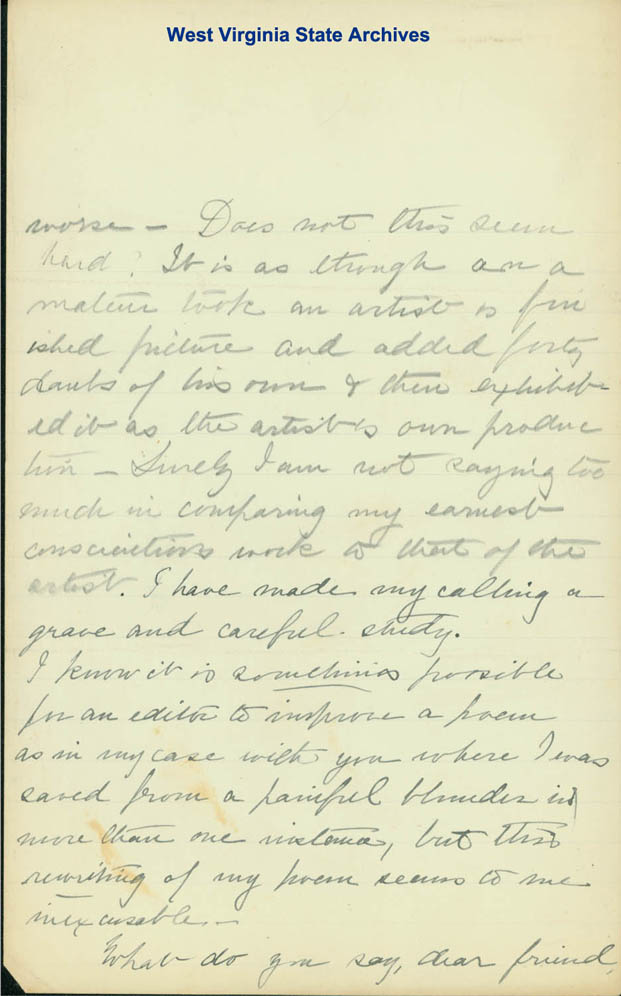 West Virginia State Archives
worse — Does not this seem
hard? It is as though an a
mateur took an artist's fin
ished picture and added forty
daubs of his own & then exhibit-
ed it as the artist's own produc
tion — Surely I am not saying too
much in comparing my earnest
conscientious work to that of the
artist. I have made my calling a
grave and careful study.
I know it is sometimes possible
for an editor to improve a poem
as in my case with you where I was
saved from a painful blunder in
more than one instance, but this
rewriting of my poem seems to me
inexcusable. —
What do you say, dear friend,